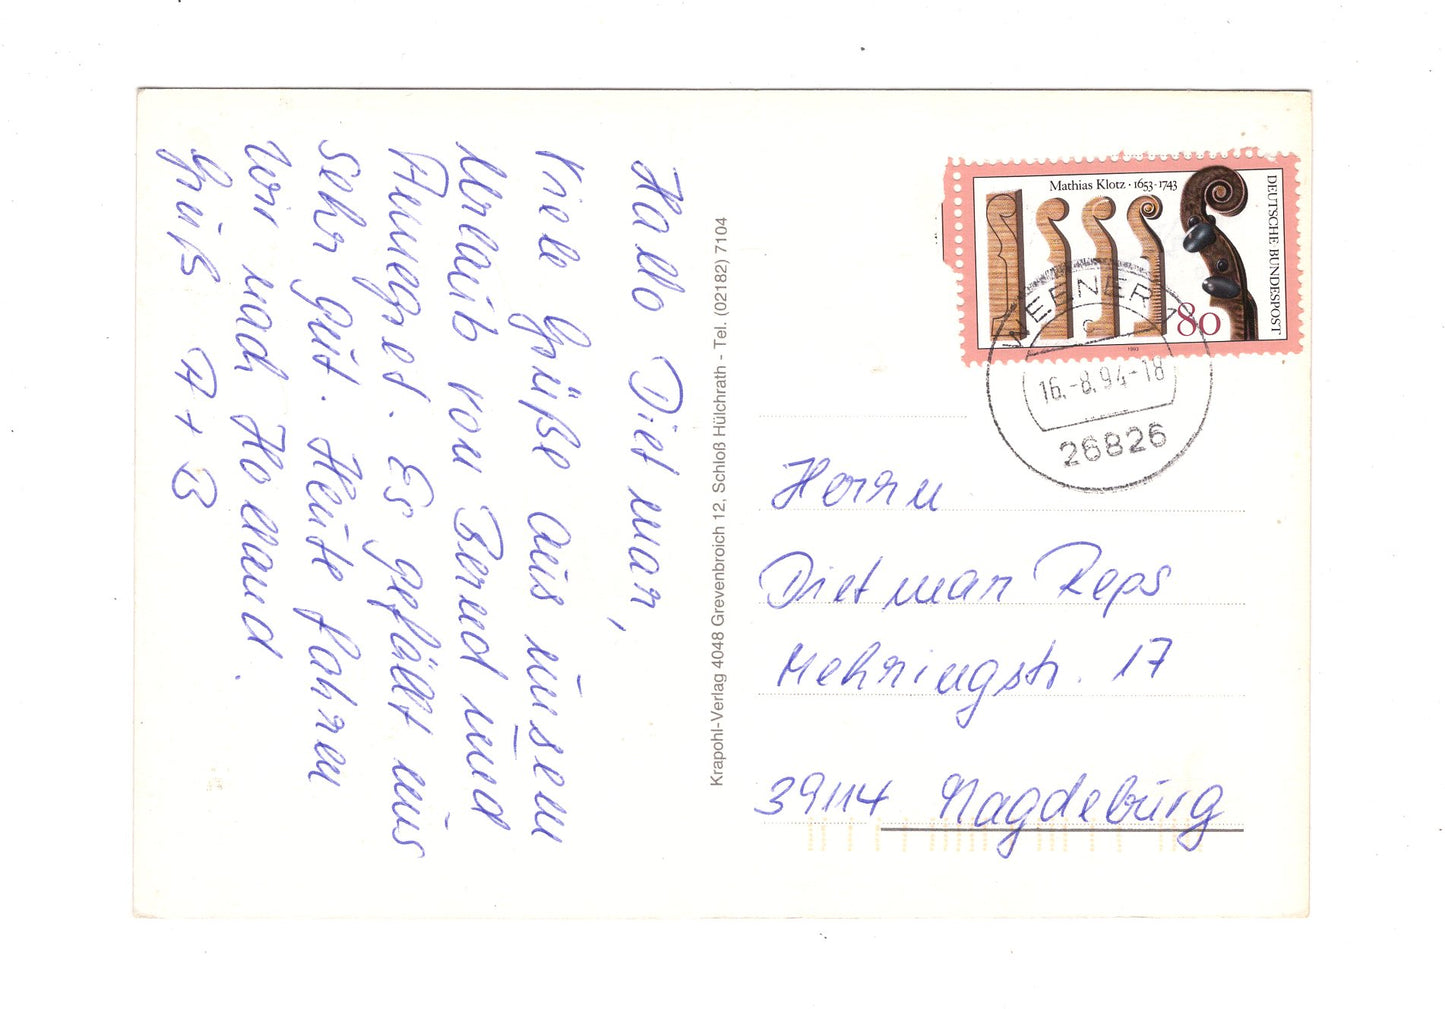 Hallo Dietmar,
Viele Grüße aus unsem
Urlaub von Bernd und
Annegret. Es gefällt uns
sehr gut. Heute fahren
wir nach Holland.
Gruß A + B
Krapohl-Verlag 4048 Grevenbroich 12, Schloß Hülchrath - Tel. (02182) 7104
Mathias Klotz · 1653-1743
DEUTSCHE BUNDESPOST
80
1993
WEENER 1
c
16.-8.94-18
26826
Herrn
Dietmar Reps
Mehringstr. 17
39114 Magdeburg